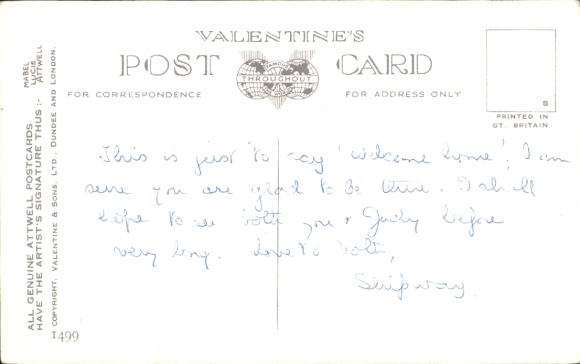 VALENTINE'S
POST CARD
FAMOUS
THROUGHOUT
THE WORLD
FOR CORRESPONDENCE
FOR ADDRESS ONLY
S
PRINTED IN
GT. BRITAIN
MABEL
LUCIE
ATTWELL
ALL GENUINE ATTWELL POSTCARDS
HAVE THE ARTIST'S SIGNATURE THUS :-
COPYRIGHT. VALENTINE & SONS, LTD., DUNDEE AND LONDON.
1499
This is just to say 'welcome home'. I am
sure you are glad to be there. I shall
hope to see both you & Judy before
very long. Love to both,
Shipway.